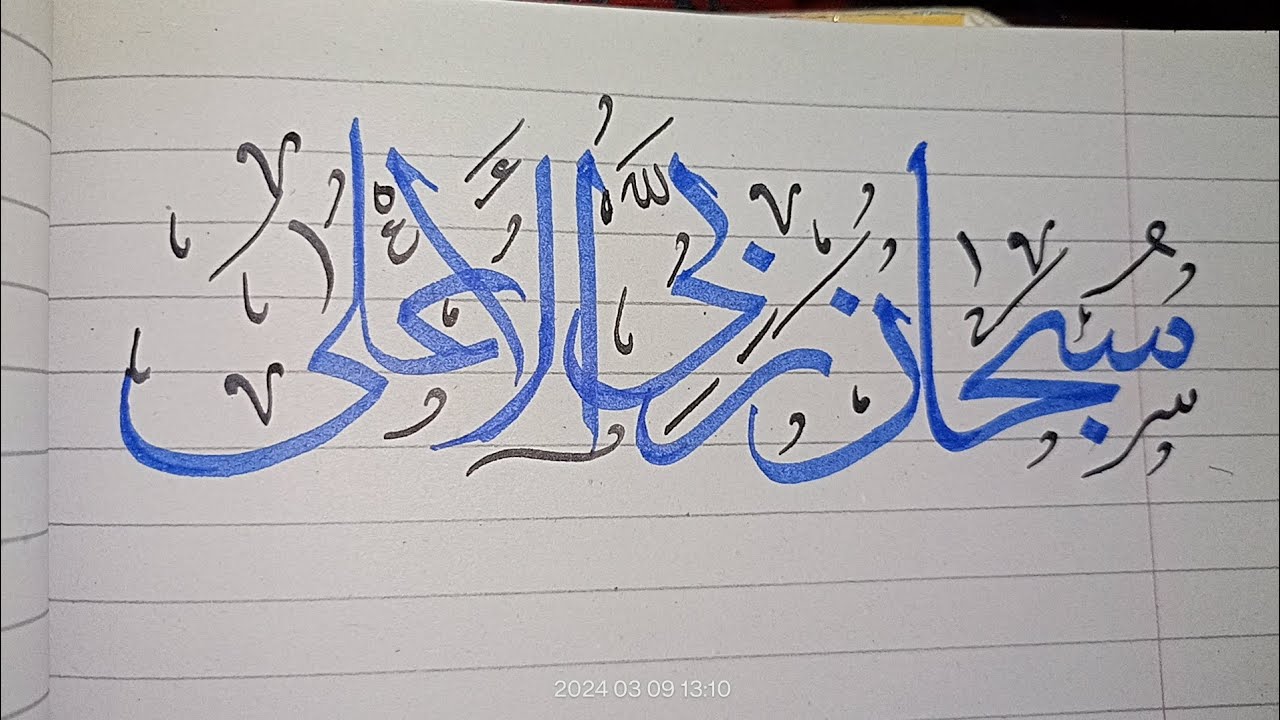 سُبْحَانَ رَبِّيَ اللّٰهُ الْأَعْلٰى
2024 03 09 13:10